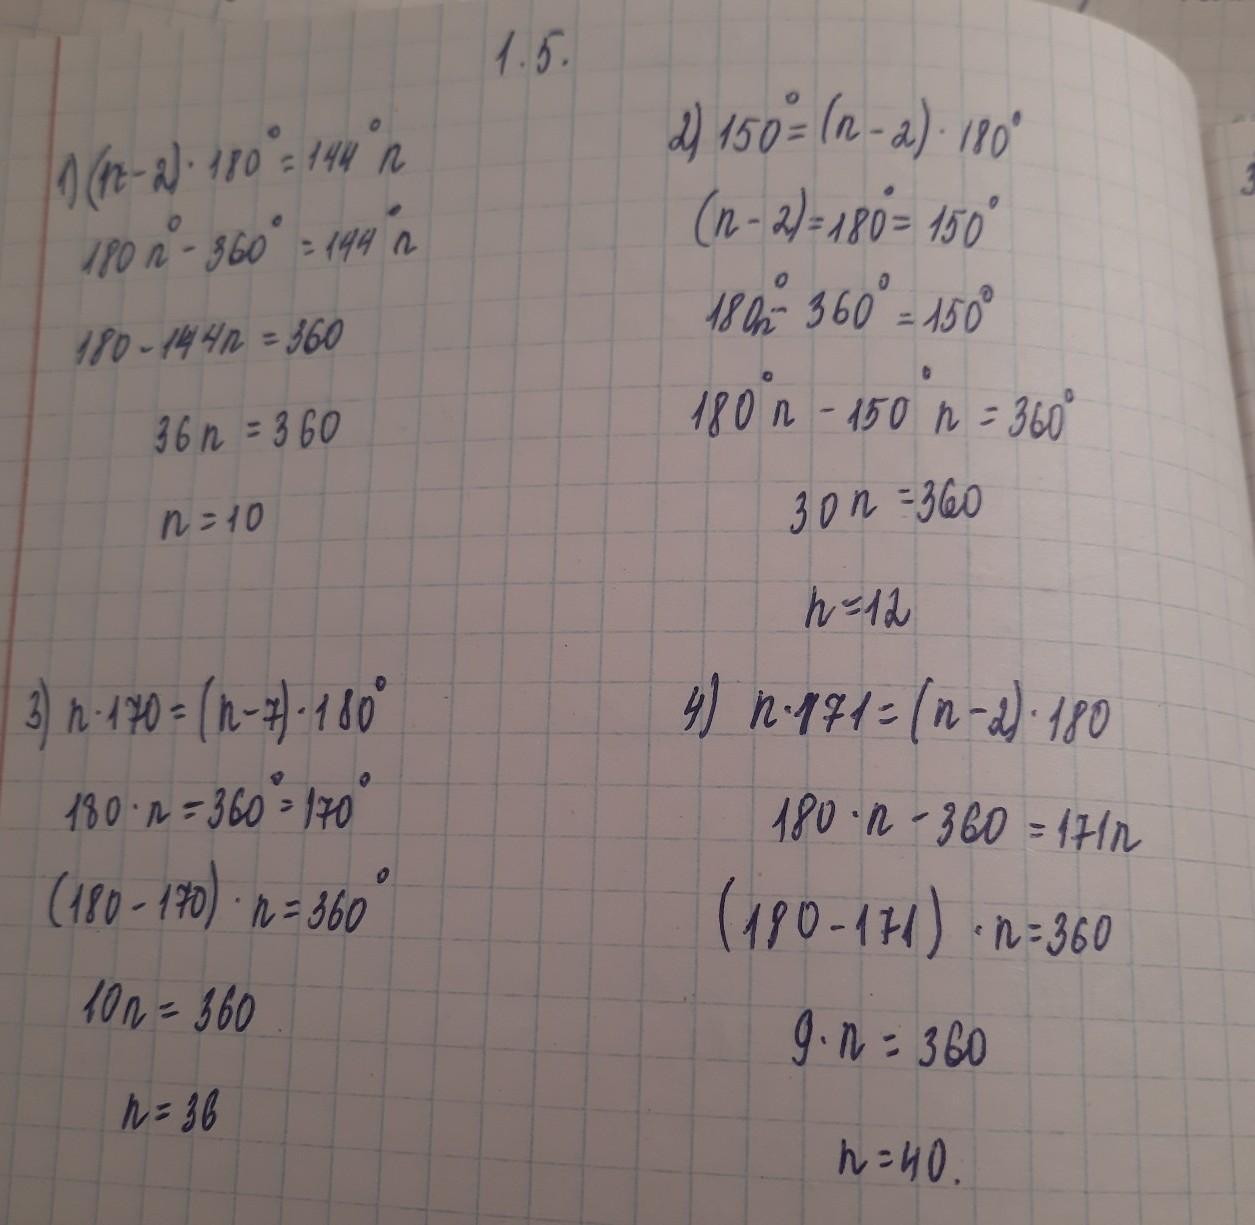 1.5.
1) (n-2)·180°=144°n
180n°-360°=144°n
180-144n=360
36n=360
n=10
2) 150°=(n-2)·180°
(n-2)=180°=150°
180n°-360°=150°
180°n-150°n=360°
30n=360
n=12
3) n·170=(n-7)·180°
180·n=360°=170°
(180-170)·n=360°
10n=360
n=36
4) n·171=(n-2)·180
180·n-360=171n
(180-171)·n=360
9·n=360
n=40.